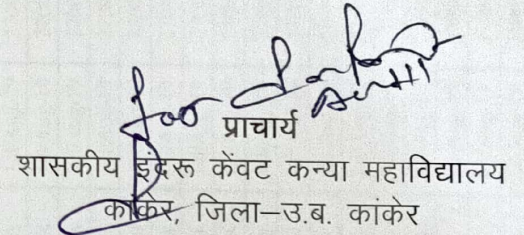 for
प्राचार्य
शासकीय इंदरू केंवट कन्या महाविद्यालय
कांकेर, जिला–उ.ब. कांकेर